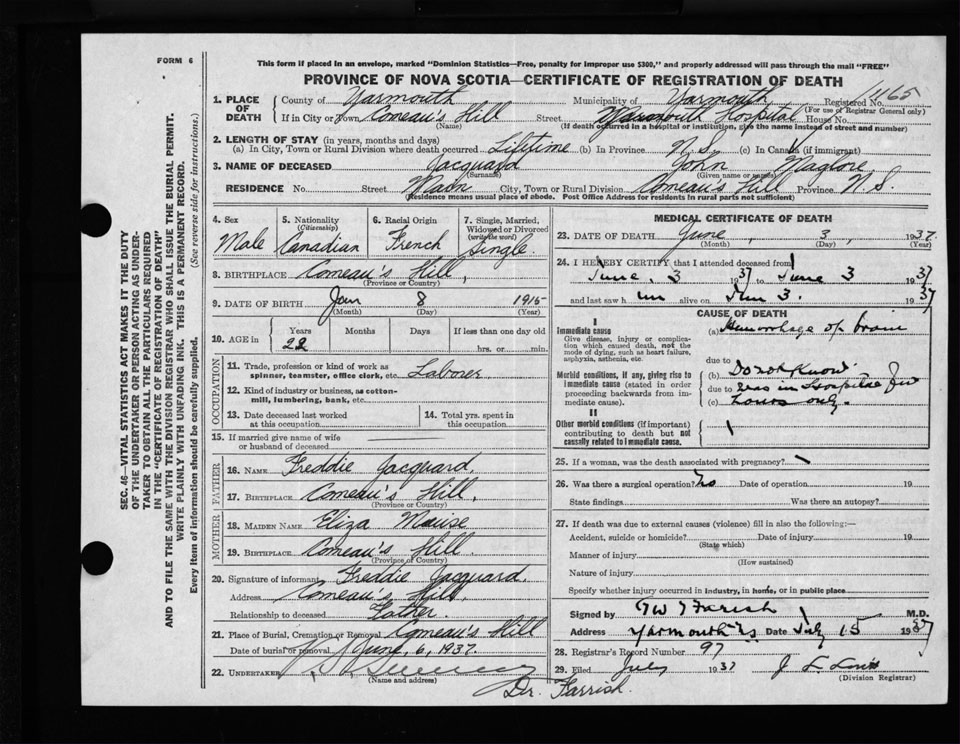 FORM 6
This form if placed in an envelope, marked "Dominion Statistics—Free, penalty for improper use $300," and properly addressed will pass through the mail "FREE"
PROVINCE OF NOVA SCOTIA—CERTIFICATE OF REGISTRATION OF DEATH
1. PLACE OF DEATH
County of Yarmouth Municipality of Yarmouth Registered No. 1165
(For use of Registrar General only)
If in City or Town Comeau's Hill Street Yarmouth Hospital House No.
(Name) (If death occurred in a hospital or institution, give the name instead of street and number)
2. LENGTH OF STAY (in years, months and days)
(a) In City, Town or Rural Division where death occurred Lifetime (b) In Province N.S. (c) In Canada (if immigrant)
3. NAME OF DECEASED Jacquard John Maglore
(Surname) (Given name or names)
RESIDENCE No. Street Main City, Town or Rural Division Comeau's Hill Province N.S.
(Residence means usual place of abode. Post Office Address for residents in rural parts not sufficient)
4. Sex 5. Nationality (Citizenship) 6. Racial Origin 7. Single, Married, Widowed or Divorced (write the word)
Male Canadian French Single
8. BIRTHPLACE Comeau's Hill,
(Province or Country)
9. DATE OF BIRTH Jan 8 1915
(Month) (Day) (Year)
10. AGE in Years Months Days If less than one day old
22 hrs. or min.
OCCUPATION
11. Trade, profession or kind of work as spinner, teamster, office clerk, etc. Laborer
12. Kind of industry or business, as cotton-mill, lumbering, bank, etc.
13. Date deceased last worked at this occupation
14. Total yrs. spent in this occupation
15. If married give name of wife or husband of deceased
FATHER
16. NAME Freddie Jacquard,
17. BIRTHPLACE Comeau's Hill,
MOTHER
18. MAIDEN NAME Eliza Muise
19. BIRTHPLACE Comeau's Hill.
(Province or Country)
20. Signature of informant Freddie Jacquard.
Address Comeau's Hill,
Relationship to deceased Father.
21. Place of Burial, Cremation or Removal Comeau's Hill
Date of burial or removal June, 6, 1937.
22. UNDERTAKER
(Name and address)
Dr. Farrish.
MEDICAL CERTIFICATE OF DEATH
23. DATE OF DEATH June, 3, 1937.
(Month) (Day) (Year)
24. I HEREBY CERTIFY that I attended deceased from
June, 3 1937 to June 3 1937
and last saw him alive on Jun 3. 1937
CAUSE OF DEATH
I
Immediate cause
Give disease, injury or complication which caused death, not the mode of dying, such as heart failure, asphyxia, asthenia, etc.
(a) Hemorrhage of brain
due to
Morbid conditions, if any, giving rise to immediate cause (stated in order proceeding backwards from immediate cause).
(b) Do not know.
due to was in Hospital few
(c) hours only.
II
Other morbid conditions (if important) contributing to death but not causally related to immediate cause.
25. If a woman, was the death associated with pregnancy?
26. Was there a surgical operation? No Date of operation 19
State findings Was there an autopsy?
27. If death was due to external causes (violence) fill in also the following:—
Accident, suicide or homicide? Date of injury 19
(State which)
Manner of injury
(How sustained)
Nature of injury
Specify whether injury occurred in industry, in home, or in public place
Signed by Farish M.D.
Address Yarmouth NS Date July 15 1937
28. Registrar's Record Number 97
29. Filed July 1937 J. L. Lewis
(Division Registrar)
SEC. 46—VITAL STATISTICS ACT MAKES IT THE DUTY
OF THE UNDERTAKER OR PERSON ACTING AS UNDER-
TAKER TO OBTAIN ALL THE PARTICULARS REQUIRED
IN THE "CERTIFICATE OF REGISTRATION OF DEATH"
AND TO FILE THE SAME WITH THE DIVISION REGISTRAR WHO SHALL ISSUE THE BURIAL PERMIT.
WRITE PLAINLY WITH UNFADING INK. THIS IS A PERMANENT RECORD.
Every item of information should be carefully supplied. (See reverse side for instructions.)